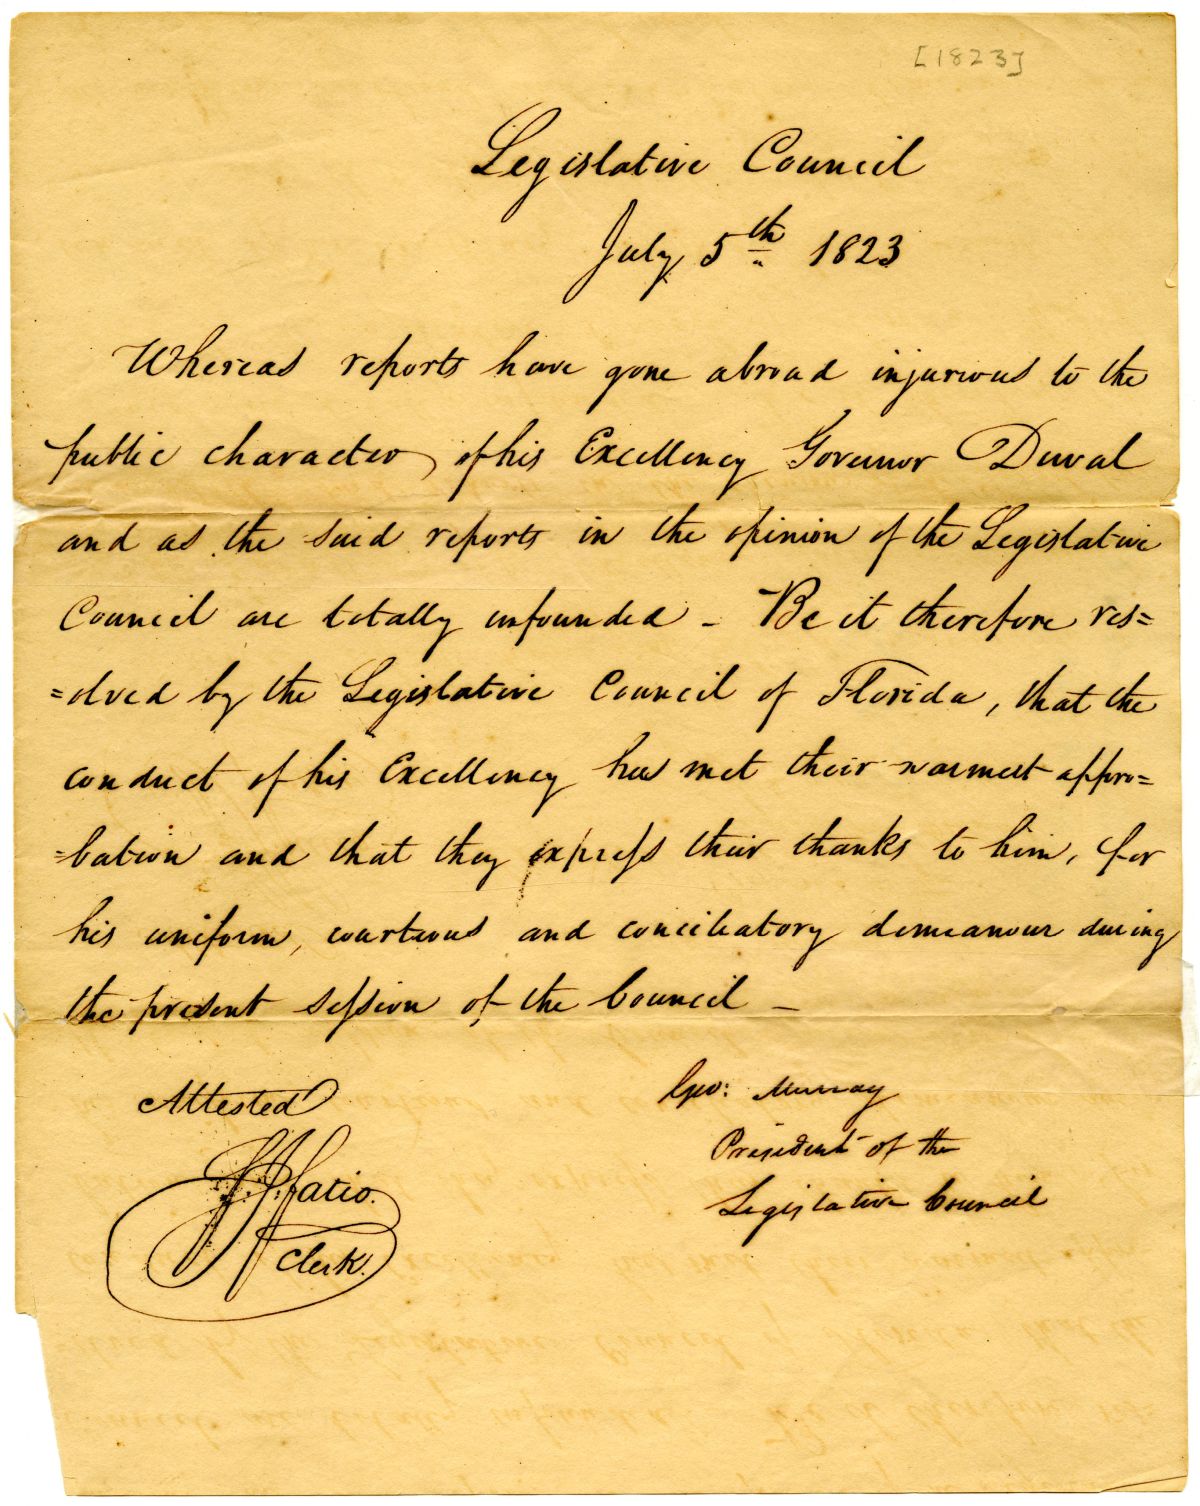 [1823]
Legislative Council
July 5th 1823
Whereas reports have gone abroad injurious to the
public character, of his Excellency Governor Duval
and as the said reports in the opinion of the Legislative
Council are totally unfounded - Be it therefore res=
=olved by the Legislative Council of Florida, that the
conduct of his Excellency has met their warmest appro=
=bation and that they express their thanks to him, for
his uniform, courteous and conciliatory demeanour during
the present session of the Council -
Attested
F. J. Fatio.
Clerk.
Geo: Murray
President of the
Legislative Council